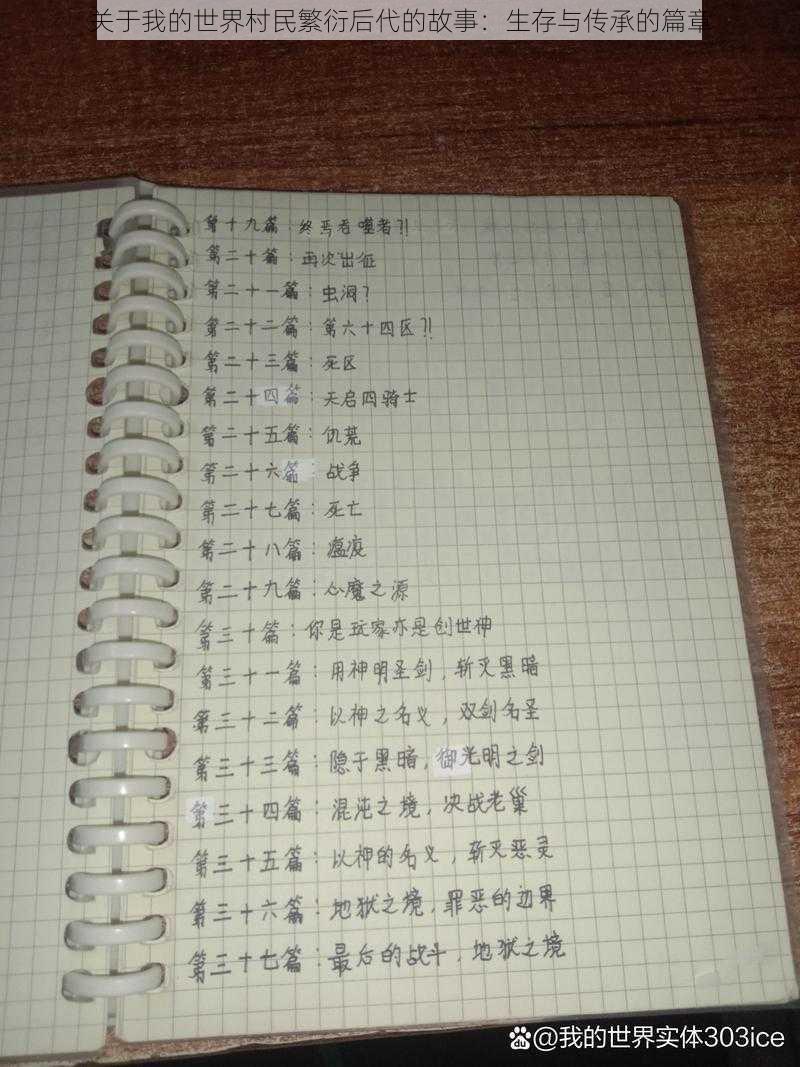 关于我的世界村民繁衍后代的故事：生存与传承的篇章
第十九篇：终焉者噬者?!
第二十篇：再次出征
第二十一篇：虫洞?
第二十二篇：第六十四区?!
第二十三篇：死区
第二十四篇：天启四骑士
第二十五篇：饥荒
第二十六篇：战争
第二十七篇：死亡
第二十八篇：瘟疫
第二十九篇：心魔之源
第三十篇：你是玩家亦是创世神
第三十一篇：用神明圣剑，斩灭黑暗
第三十二篇：以神之名义，双剑名圣
第三十三篇：隐于黑暗，御光明之剑
第三十四篇：混沌之境，决战老巢
第三十五篇：以神的名义，斩灭恶灵
第三十六篇：地狱之境，罪恶的边界
第三十七篇：最后的战斗，地狱之境
@我的世界实体303ice